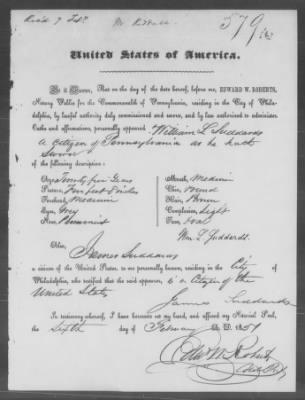 Rec'd 7 Feby
579
United States of America.
Be it Known, That on the day of the date hereof, before me, EDWARD W. ROBERTS,
Notary Public for the Commonwealth of Pennsylvania, residing in the City of Phila-
delphia, by lawful authority duly commissioned and sworn, and by law authorized to administer
Oaths and affirmations, personally appeared William L Suddards
a Citizen of Pennsylvania as he hath
sworn
of the following description:
Age, Twenty five Years Mouth, Medium
Stature, Chin, Round
Forehead, Medium Hair, Brown
Eyes, Grey Complexion, Light
Nose, Face, Oval
Wm. L. Suddards.
Also, James Suddards
a citizen of the United States, to me personally known, residing in the City
of Philadelphia, who testified that the said appearer, is a Citizen of the
United States
James Suddards
In testimony whereof, I have hereunto set my hand, and affixed my Notarial Seal,
the Sixth day of February A. D. 1851
Edw. W. Roberts